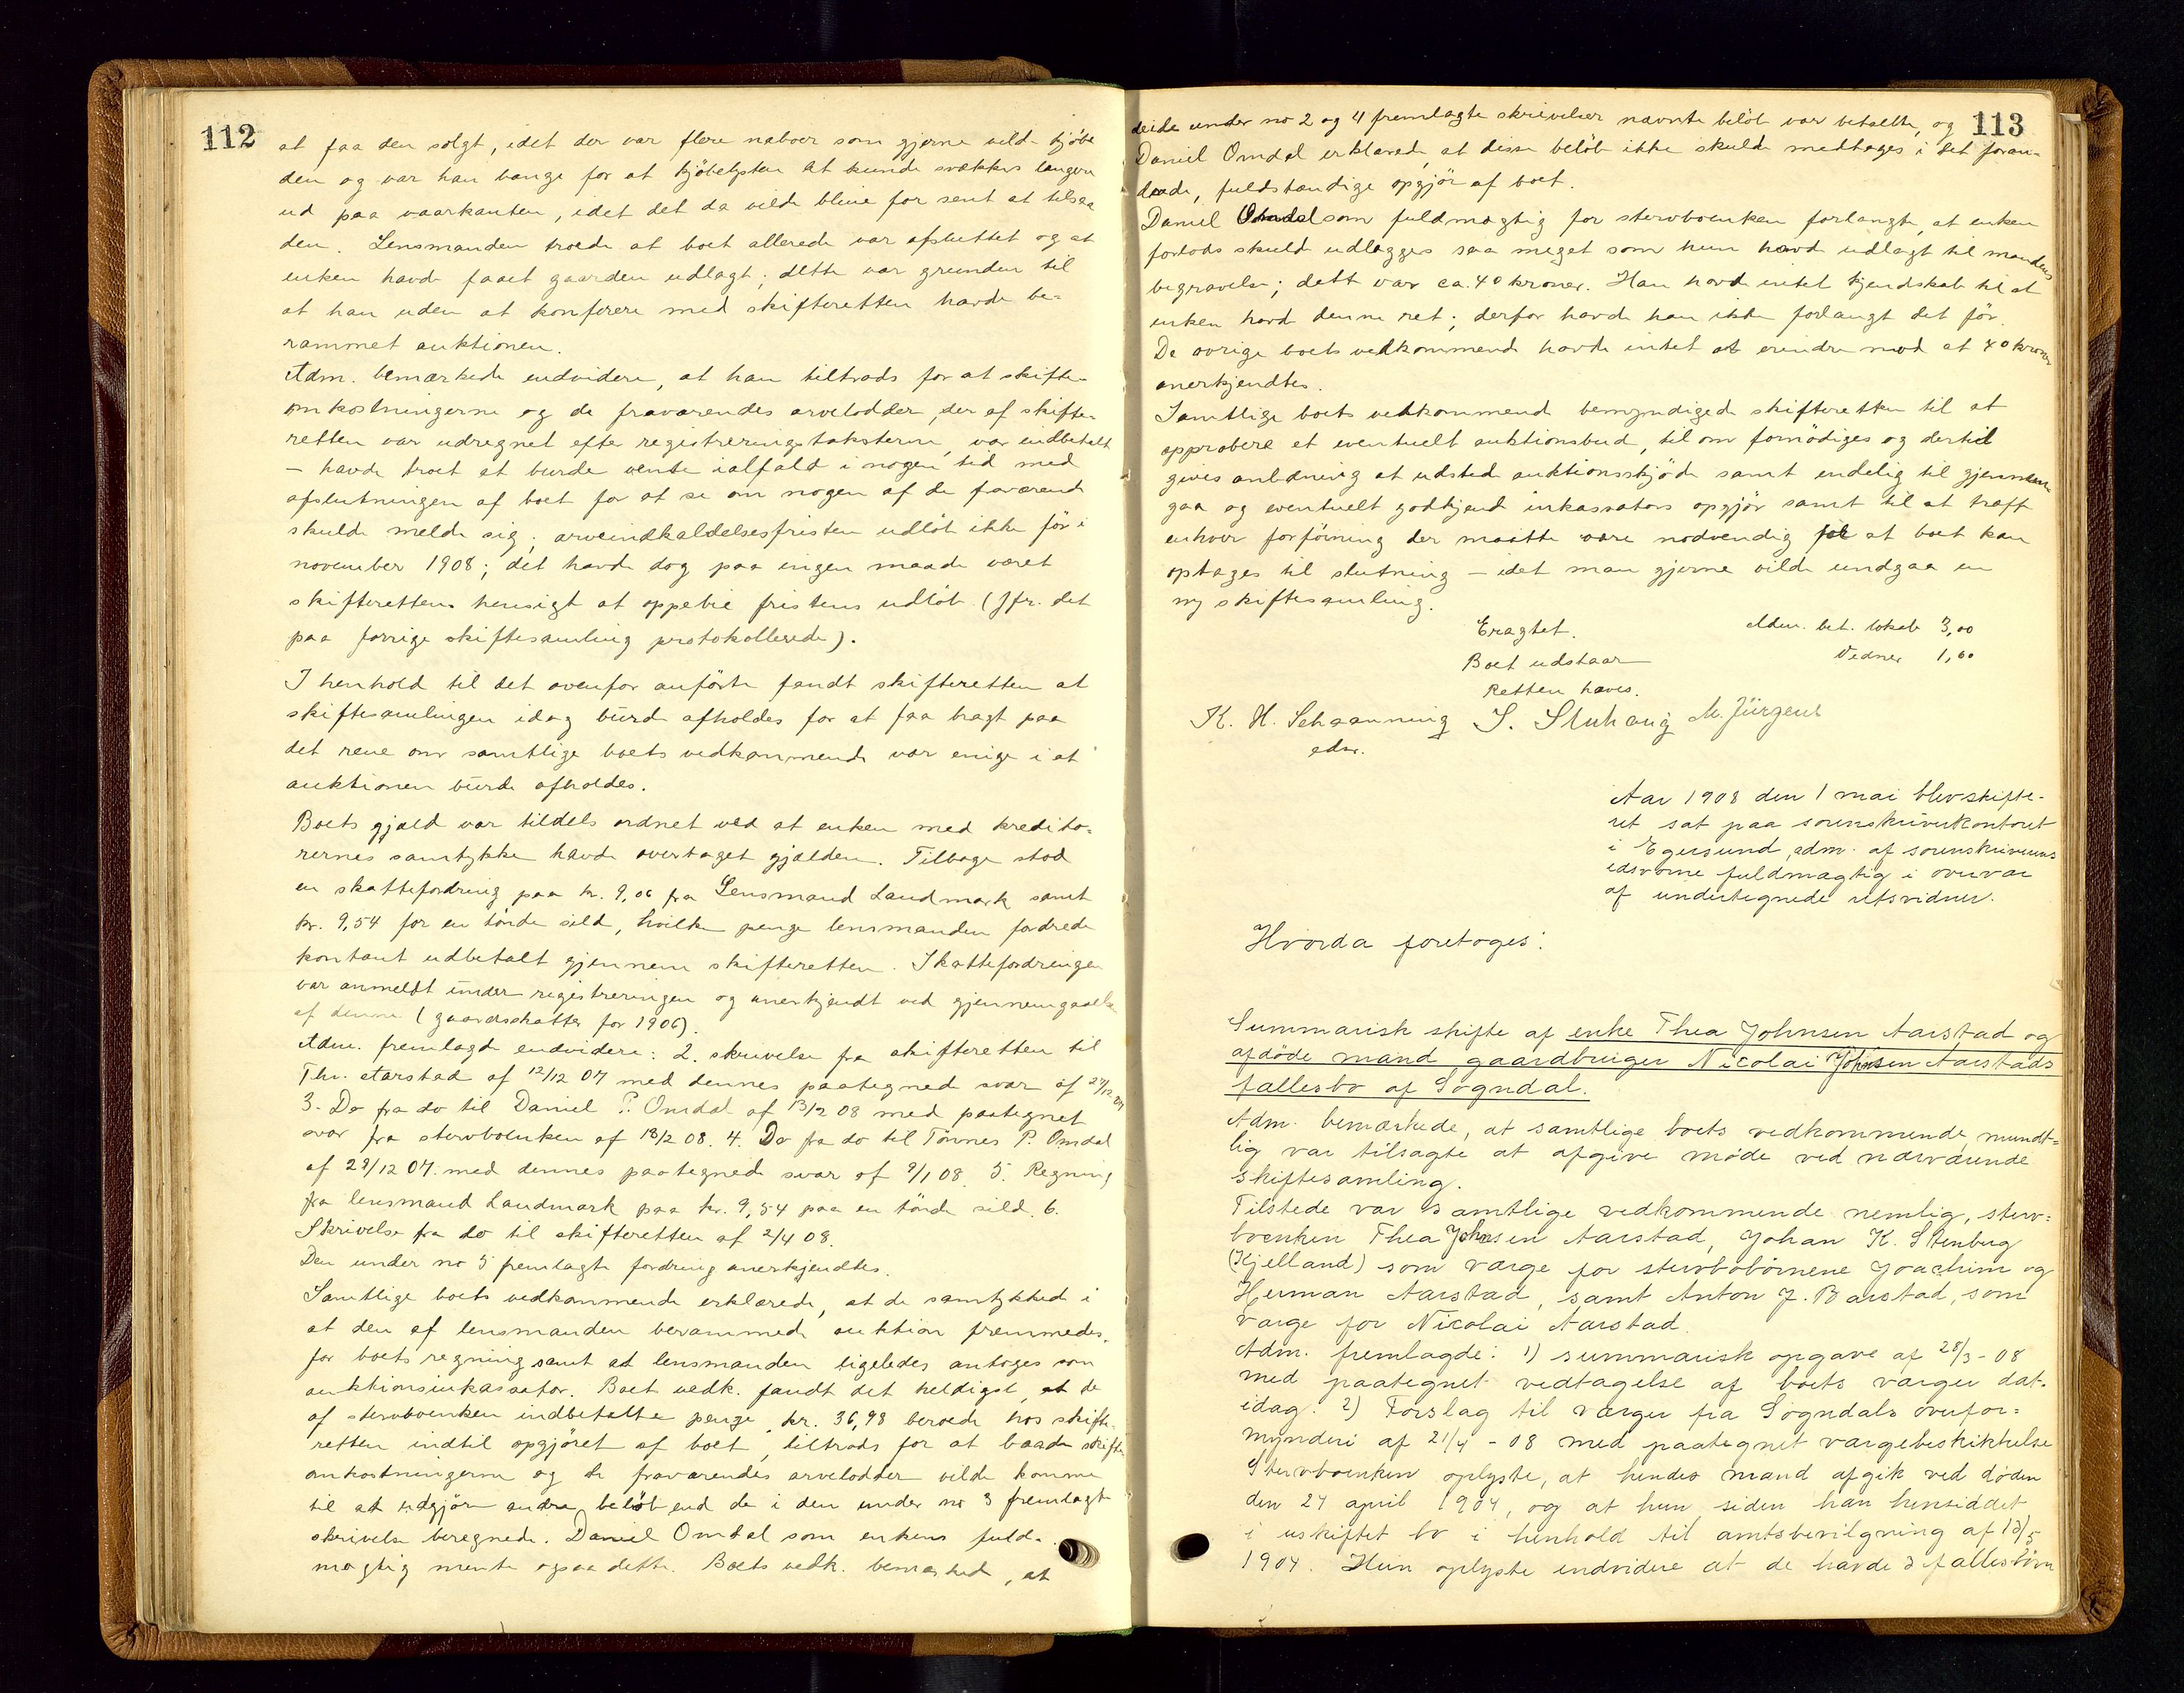 112
at faa den solgt, idet der var flere naboer som gjerne vilde kjöbe
den og var han bange for at kjöbelysten at kunde svækkes længere
ud paa vaarkanten, idet det da vilde blive for sent at tilsaa
den. Lensmanden troede at boet allerede var afsluttet og at
enken havde faaet gaarden udlagt; dette var grunden til
at han uden at konferere med skifteretten havde be-
rammet auktionen.
Adm. bemærkede endvidere, at han tiltrods for at skifte-
omkostningerne og de fraværendes arvelodder, der af skifte-
retten var udregnet efter registreringstaksterne, var indbetalt
— havde troet at burde vente ialfald i nogen tid med
afslutningen af boet for at se om nogen af de fraværende
skulde melde sig; arveindkaldelsesfristen udlöb ikke för i
november 1908; det havde dog paa ingen maade været
skifterettens hensigt at oppebie fristens udlöb (Jfr. det
paa forrige skiftesamling protokollerede).
I henhold til det ovenfor anförte fandt skifteretten at
skiftesamlingen idag burde afholdes for at faa bragt paa
det rene om samtlige boets vedkommende var enige i at
auktionen burde afholdes.
Boets gjæld var tildels ordnet ved at enken med kredito-
rernes samtykke havde overtaget gjælden. Tilbage stod
en skattefordring paa kr. 9,06 fra Lensmand Landmark samt
kr. 9,54 for en tönde sild, hvilke penge lensmanden fordrede
kontant udbetalt gjennem skifteretten. Skattefordringen
var anmeldt under registreringen og anerkjendt ved gjennemgaaelse
af denne (gaardsskatter for 1906).
Adm. fremlagde endvidere: 2. skrivelse fra skifteretten til
Thr. Aarstad af 12/12 07 med dennes paategnede svar af 27/12 07
3. Do fra do til Daniel P. Omdal af 13/2 08 med paategnet
svar fra stervboenken af 18/2 08. 4. Do fra do til Tönnes P. Omdal
af 28/12 07 med dennes paategnede svar af 9/1 08. 5. Regning
fra lensmand Landmark paa kr. 9,54 paa en tönde sild. 6.
Skrivelse fra do til skifteretten af 2/4 08.
Den under no 5 fremlagte fordring anerkjendtes.
Samtlige boets vedkommende erklærede, at de samtykked i
at den af lensmanden berammede auktion fremmedes,
for boets regning samt at lensmanden ligeledes antoges som
auktionsinkassator. Boets vedk. fandt det heldigst, at de
af stervboenken indbetalte penge kr. 36,98 beroede hos skifte-
retten indtil opgjöret af boet, tiltrods for at baade skifte
omkostningerne og de fraværendes arvelodder vilde komme
til at udgjöre andre belöb end de i den under no 3 fremlagte
skrivelse beregnede. Daniel Omdal som enkens fuld-
mægtig mente ogsaa dette. Boets vedk. bemærked, at
113
deide under no 2 og 4 fremlagte skrivelser nævnte belöb var betalte, og
Daniel Omdal erklærede, at disse belöb ikke skulde medtages i det foran-
deade, fuldstændige opgjör af boet.
Daniel Omdal som fuldmægtig for stervboenken forlangte, at enken
forlods skulde udlægges saa meget som hun havde udlagt til mandens
begravelse; dette var ca. 40 kroner. Han havde intet kjendskab til at
enken havde denne ret; derfor havde han ikke forlangt det för.
De øvrige boets vedkommende havde intet at erindre mod at 40 kroner
anerkjendtes.
Samtlige boets vedkommende bemyndigede skifteretten til at
approbere et eventuelt auktionsbud, til om fornödiges og dertil
gives anledning at udstede auktionsskjöde samt endelig til gjennem
gaa og eventuelt godkjende inkassators opgjör samt til at træffe
enhver forföining der maatte være nödvendig for at boet kan
optages til slutning — idet man gjerne vilde undgaa en
ny skiftesamling.
Eragtet.
Boet udstaar
Retten hæves.
Adm. bet. lokale 3,00
Vidner 1,60
K. H. Schaanning S. Stuhaug M. Jürgens
edsv.
Aar 1908 den 1 mai blev skifte-
ret sat paa sorenskriverkontoret
i Egersund, adm. af sorenskriverens
edsvorne fuldmægtig i overvær
af undertegnede retsvidner.
Hvorda foretoges:
Summarisk skifte af enke Thea Johnsen Aarstad og
afdöde mand gaardbruger Nicolai Johnsen Aarstads
fællesbo af Sogndal.
Adm. bemærkede, at samtlige boets vedkommende mundt-
lig var tilsagte at afgive möde ved nærværende
skiftesamling.
Tilstede var samtlige vedkommende nemlig, sterv-
boenken Thea Johnsen Aarstad, Johan K. Stenberg
(Kjelland) som værge for stervbobörnene Joachim og
Herman Aarstad, samt Anton J. Barstad, som
værge for Nicolai Aarstad.
Adm. fremlagde: 1) summarisk opgave af 28/3-08
med paategnet vedtagelse af boets værger dat.
idag. 2) Forslag til værger fra Sogndals overfor-
mynderi af 21/4-08 med paategnet værgebeskikkelse
Stervboenken oplyste, at hendes mand afgik ved döden
den 24 april 1904, og at hun siden han hensiddet
i uskiftet bo i henhold til amtsbevilgning af 13/5
1904. Hun oplyste endvidere at de havde 3 fællesbörn